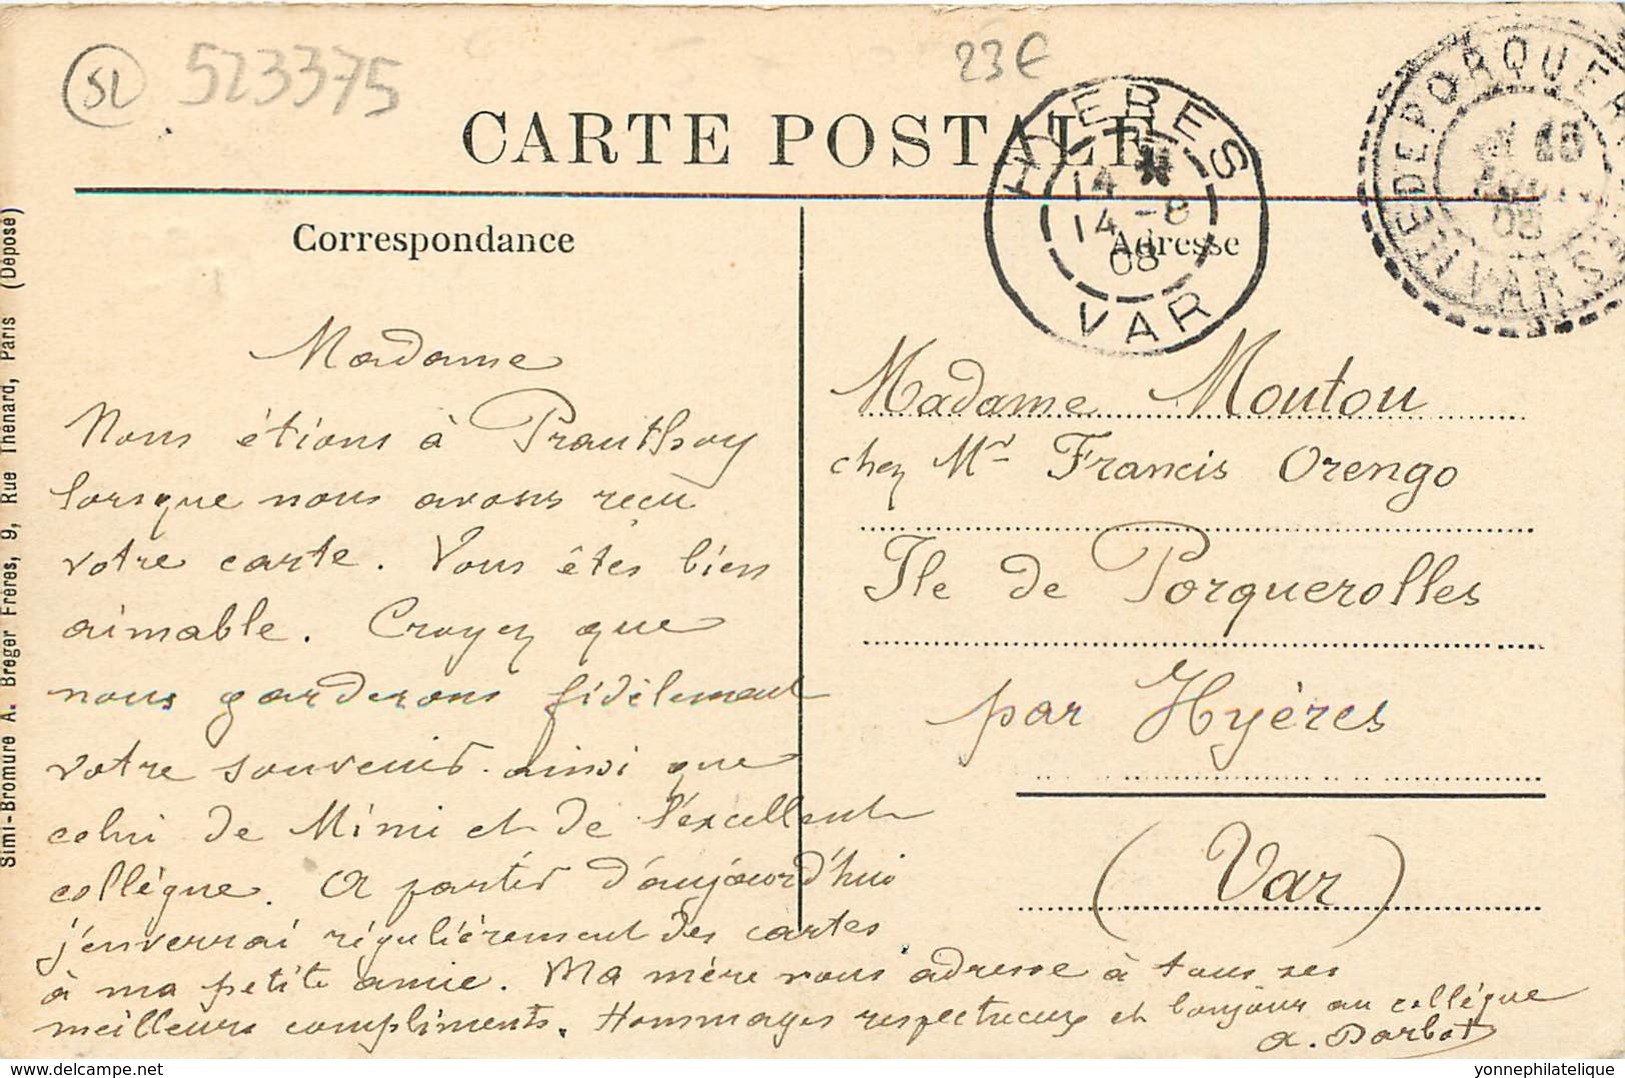 52
523375
23€
CARTE POSTALE
HYERES
14
14-8
08
VAR
ILE DE PORQUER
08
VAR
Correspondance
Adresse
Simi-Bromure A. Breger Frères, 9, Rue Thénard, Paris (Déposé)
Madame
Nous étions à Prauthoy
lorsque nous avons reçu
votre carte. Vous êtes bien
aimable. Croyez que
nous garderons fidèlement
votre souvenir ainsi que
celui de Mimi et de l'excellent
collègue. A partir d'aujourd'hui
j'enverrai régulièrement des cartes
à ma petite amie. Ma mère vous adresse à tous ses
meilleurs compliments. Hommages respectueux et bonjour au collègue
A. Darbot
Madame Moutou
chez Mr Francis Orengo
Ile de Porquerolles
par Hyères
(Var)
delcampe.net
yonnephilatelique